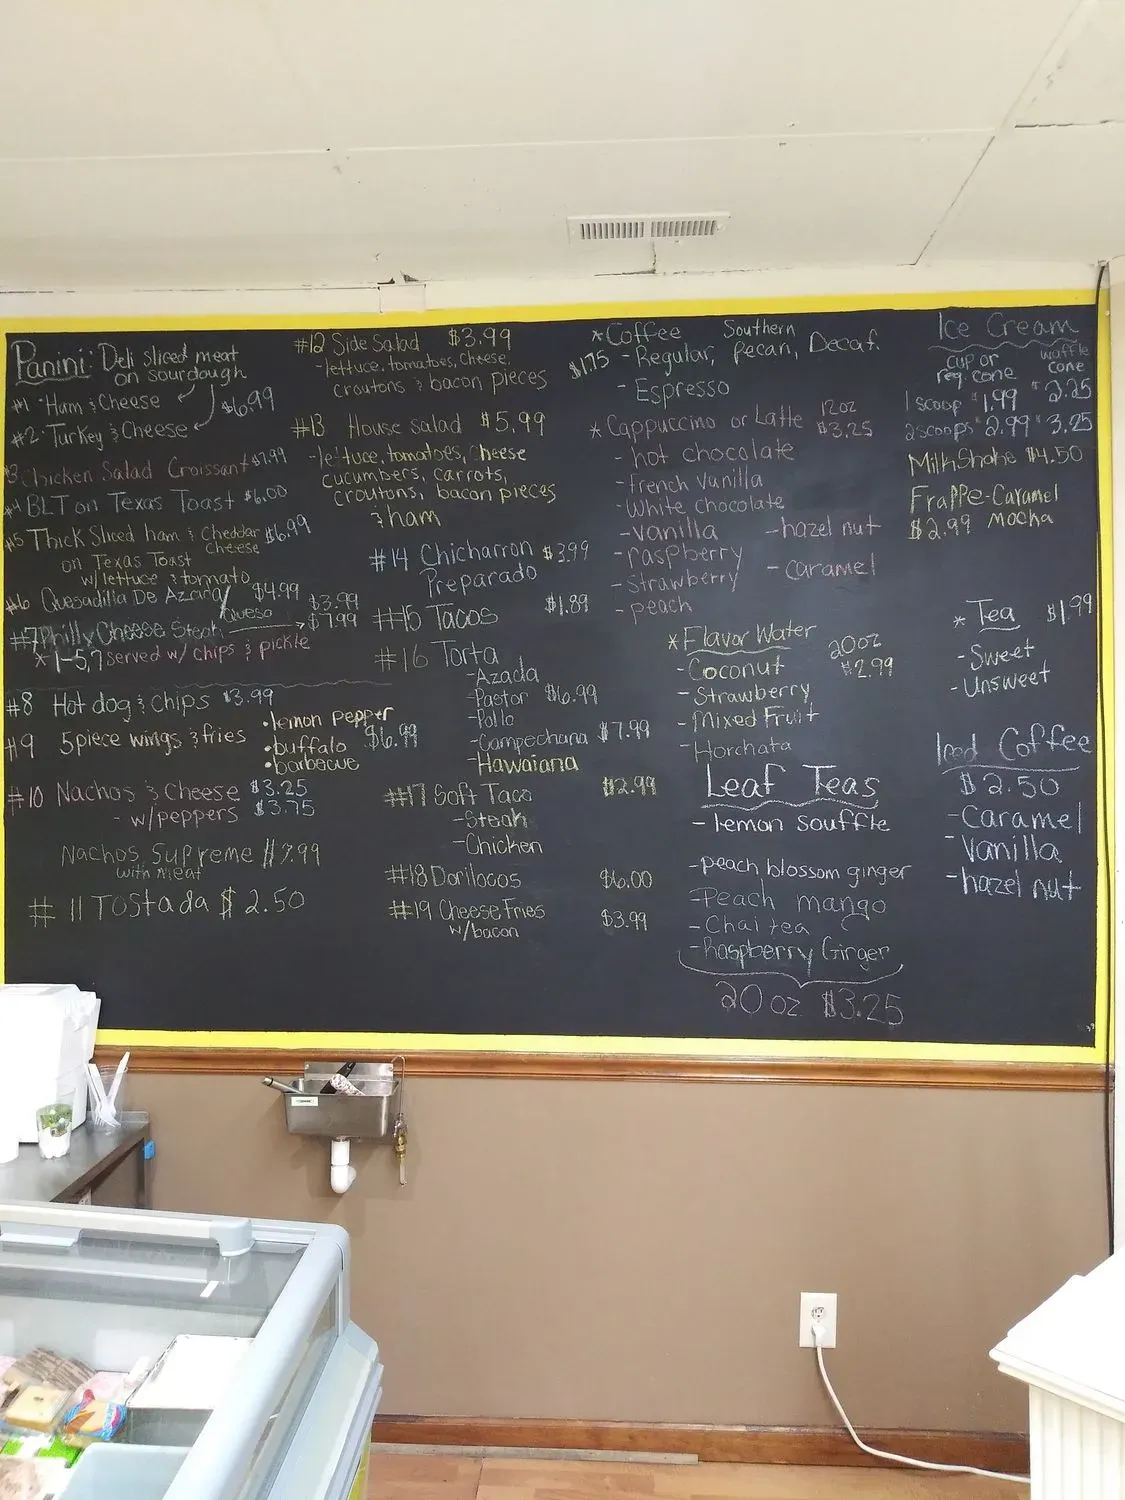 Panini: Deli sliced meat
on sourdough
#1 Ham & Cheese
$6.99
#2 Turkey & Cheese
#3 Chicken Salad Croissant $7.99
#4 BLT on Texas Toast $6.00
#5 Thick Sliced ham & Cheddar $6.99
Cheese
on Texas Toast
w/ lettuce & tomato
#6 Quesadilla De Azada/ $4.99
Queso $3.99
#7 Philly Cheese Steak $7.99
* 1-5,7 served w/ chips & pickle
#8 Hot dog & chips $3.99
#9 5piece wings & fries
• lemon pepper
• buffalo $6.99
• barbecue
#10 Nachos & Cheese $3.25
- w/peppers $3.75
Nachos Supreme $7.99
with meat
# 11 Tostada $2.50
#12 Side Salad $3.99
-lettuce, tomatoes, cheese,
croutons & bacon pieces
#13 House salad $5.99
-lettuce, tomatoes, cheese
cucumbers, carrots,
croutons, bacon pieces
& ham
#14 Chicharron $3.99
Preparado
#15 Tacos $1.89
#16 Torta
-Azada
-Pastor $6.99
-Pollo
-Campechana $7.99
-Hawaiana
#17 Soft Taco $2.99
-Steak
-Chicken
#18 Dorilocos $6.00
#19 Cheese Fries $3.99
w/bacon
* Coffee
$1.75 - Regular, Southern Pecan, Decaf
- Espresso
* Cappuccino or Latte 12oz $3.25
- hot chocolate
- french vanilla
- White chocolate
- vanilla - hazel nut
- raspberry
- strawberry - caramel
- peach
* Flavor Water 20oz
- Coconut $2.99
- Strawberry
- Mixed Fruit
- Horchata
Leaf Teas
- lemon souffle
- peach blossom ginger
- Peach mango
- Chai tea
- Raspberry Ginger
20 oz $3.25
Ice Cream
cup or reg. cone waffle cone
1 scoop $1.99 $2.25
2 scoops $2.99 $3.25
MilkShake $4.50
Frappe-Caramel
$2.99 Mocha
* Tea $1.99
- Sweet
- Unsweet
Iced Coffee
$2.50
- Caramel
- Vanilla
- hazel nut